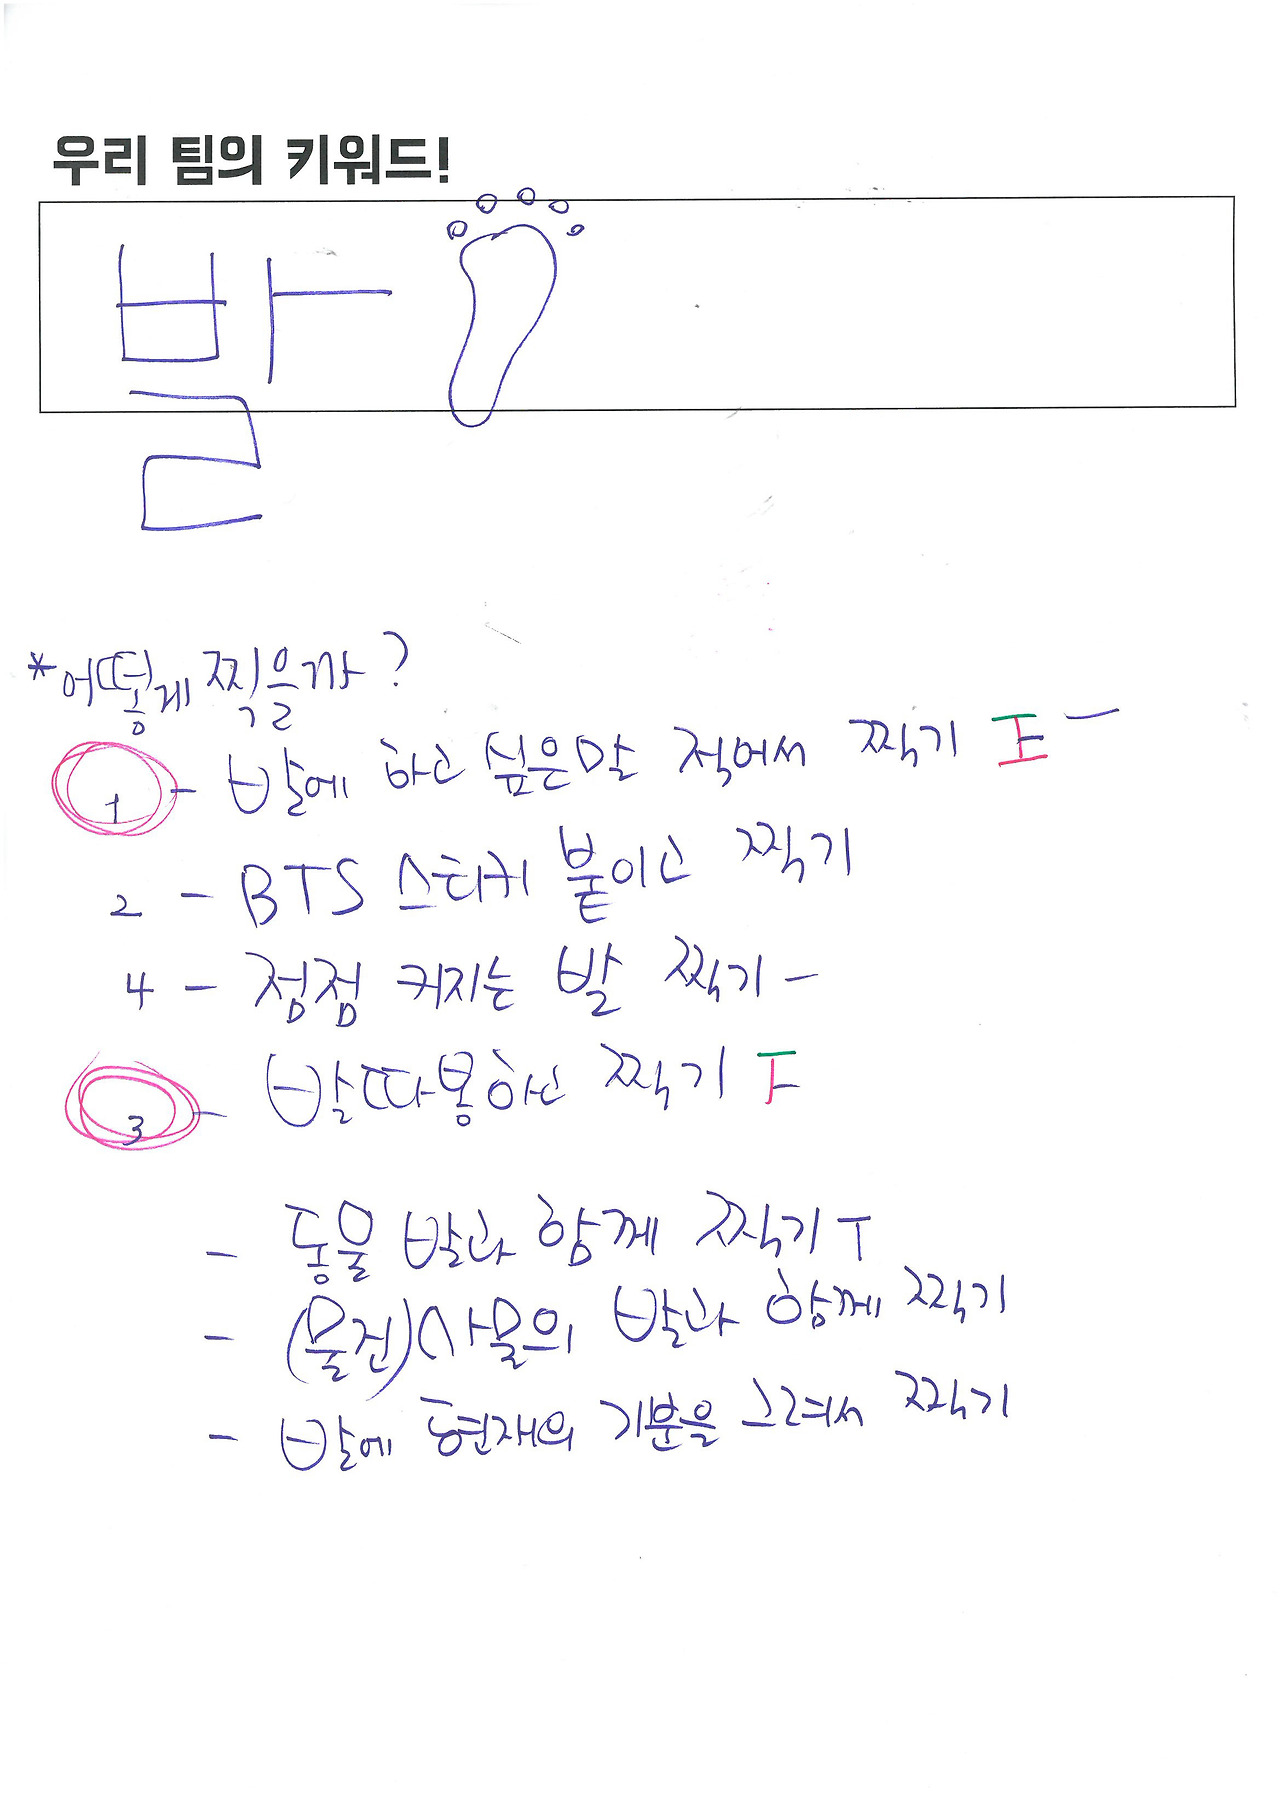 우리 팀의 키워드!
발
*어떻게 찍을까?
1 - 발에 하고 싶은말 적어서 찍기 正 一
2 - BTS 스티커 붙이고 찍기
4 - 점점 커지는 발 찍기 -
3 - 발따봉하고 찍기 下
- 동물 발과 함께 찍기 T
- (물건)사물의 발과 함께 찍기
- 발에 현재의 기분을 그려서 찍기